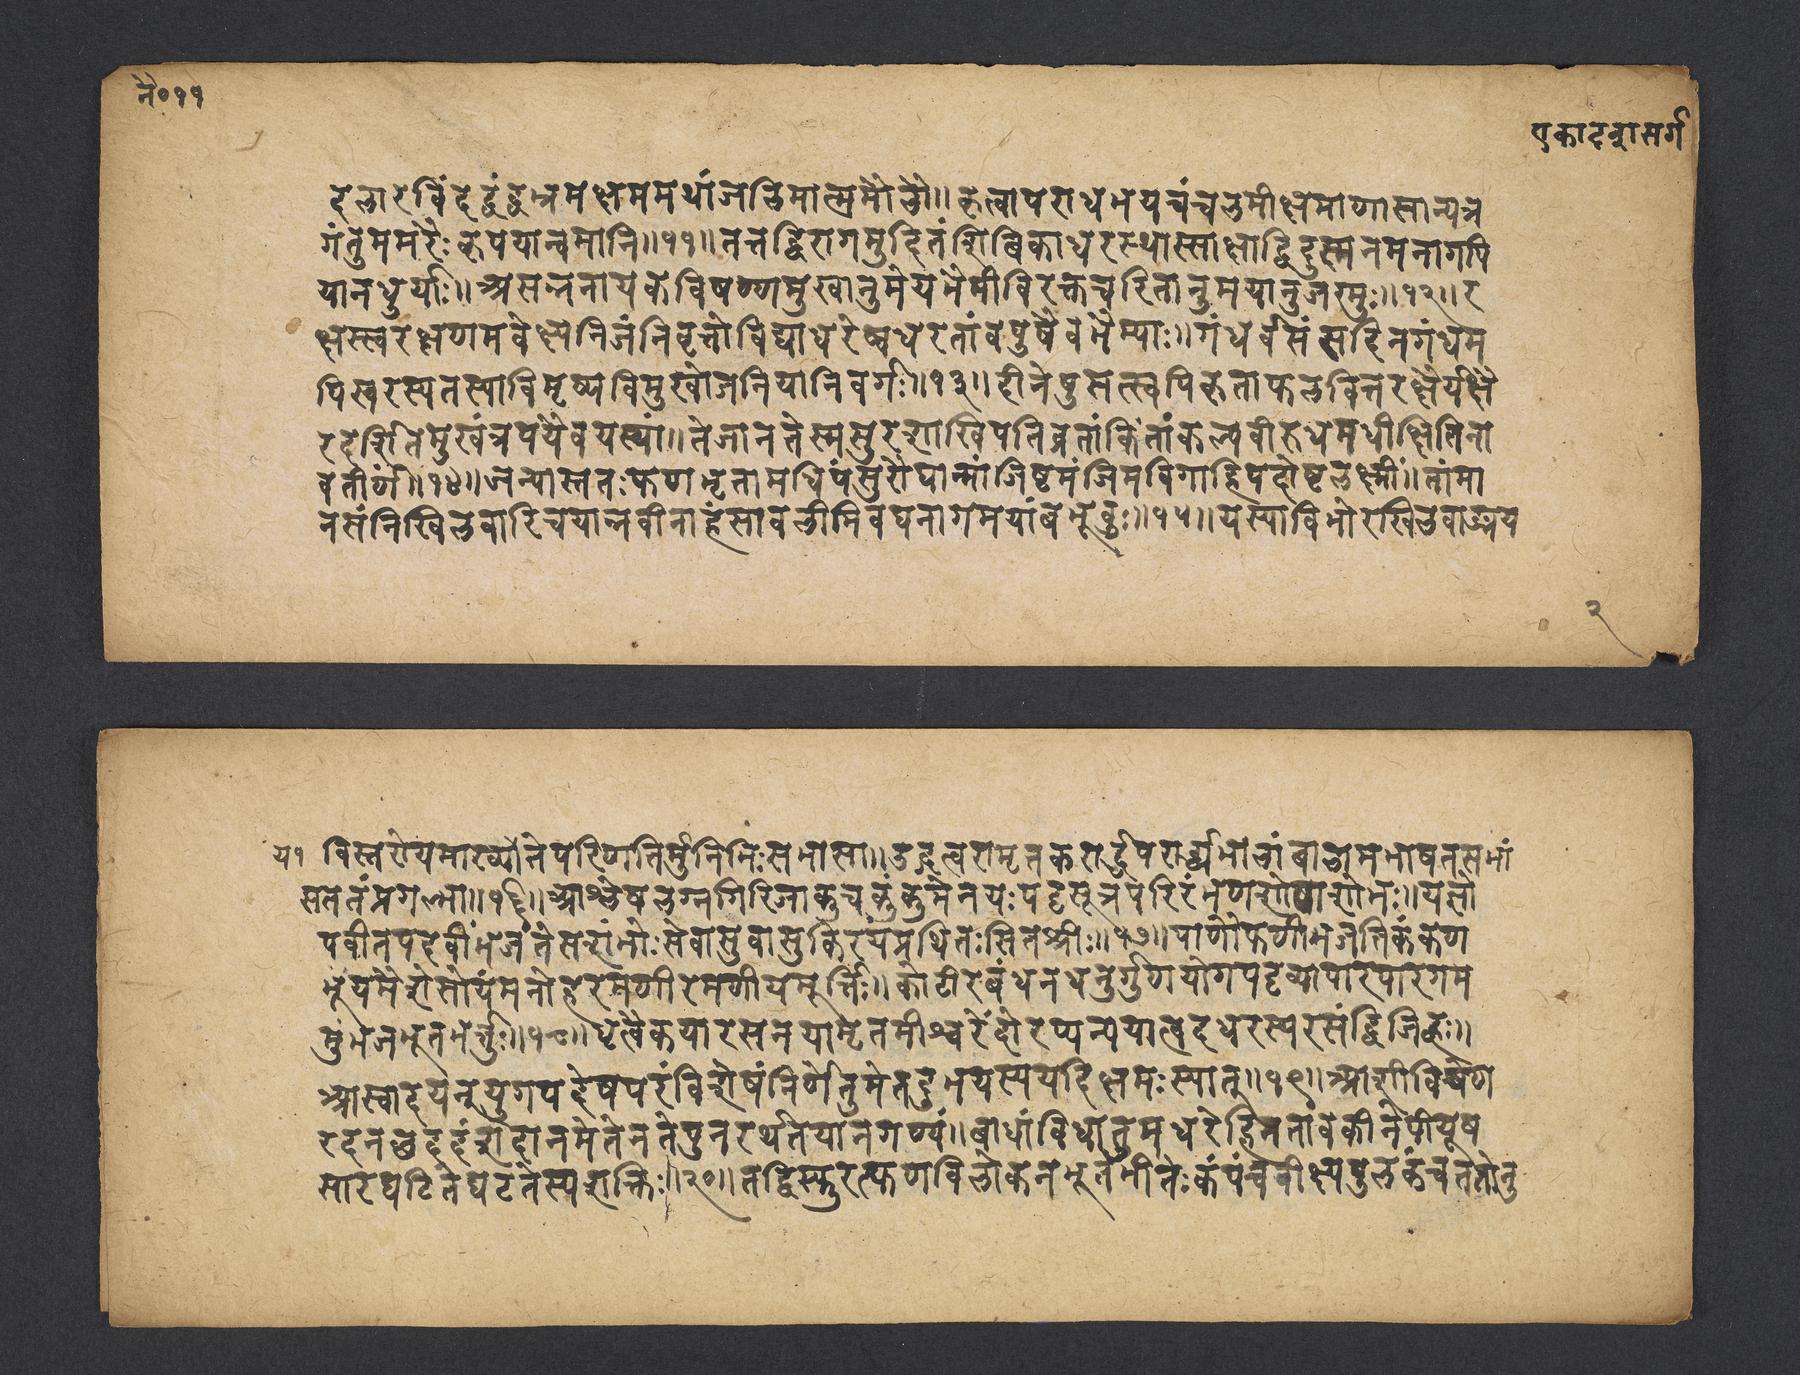 नै०११
एकादशसर्ग
द्दलारविंदेद्वंद्वभ्रमक्षममथांजलिमात्ममौलौ॥ कृत्वापराधभयचंचलमीक्षमाणासान्यत्र
गंतुममरैः कृपयान्वमानि॥११॥ तत्तद्विरागमुदितंशिबिकाधरस्थास्साक्षाद्विदुस्मनमनागपि
यानधुर्याः॥ असन्ननायकविषण्णमुखानुमेयभैमीविरक्तचरितानुमयानुजज्ञुः॥१२॥ र
क्षस्स्वरक्षणमवेक्ष्यनिजंनिवृत्तोविद्याधरेष्वधरतांवपुषैवभैम्याः॥ गंधर्वसंसदिनगंधम
पिस्वरस्यतस्याविमृष्यविमुखोजनियानवर्गः॥१३॥ दीनेषुसत्स्वपिकृताफलवित्तरक्षैर्यक्षै
रदर्शितमुखंत्रपयैवयस्यां॥ तेजानतेस्मसुरशाखिपतिव्रतांकिंतांकल्पवीरुधमधीक्षितिना
वतीर्णां॥१४॥ जन्यास्ततःफणभृतामधिपंसुरौघान्मांजिष्टमंजिमविगाहिपदोष्टलक्ष्मीं॥ तांमा
नसंनिखिलवारिचयान्नवीनाहंसावलीमिवघनागमयांबभूवुः॥१५॥ यस्याविभोरखिलवाङ्मय
२
य१ विस्तरोयमाख्यातेपरिणतिर्मुनिभिःसभासा॥ उद्गत्वरामृतकरार्द्धपरार्द्ध्यभालांबालामभाषतसभां
सततंप्रगल्भा॥१६॥ आश्लेषलग्नगिरिजाकुचकुंकुमेनयःपट्टसूत्रपरिरंभणशोणशोभः॥ यज्ञो
पवीतपदवींभजतेसशंभोःसेवासुवासुकिरयंप्रथितःसितश्रीः॥१७॥ पाणौफणीभजतिकंकण
भूयमैशेसोयंमनोहरमणीरमणीयमूर्त्तिः॥ कोटीरबंधनधनुर्गुणयोगपट्टव्यापारपारगम
मुंभजभूतभर्त्तुः॥१८॥ धृत्वैकयारसनयामृतमीश्वरेंदोरप्यन्ययात्वदधरस्यरसंद्विजिह्वः॥
आस्वादयन्युगपदेषपरंविशेषंनिर्णेतुमेतदुभयस्ययदिक्षमःस्यात्॥१९॥ आशीविषेण
रदनछददंशदानमेतेनतेपुनरर्थतयानगण्यं॥ बाधांविधातुमधरेहिनतावकीनेपीयूष
सारघटितेघटतेस्यशक्तिः॥२०॥ तद्विस्फुरत्फणविलोकनभूतभीतेःकंपंचवीक्ष्यपुलकंचततोनु